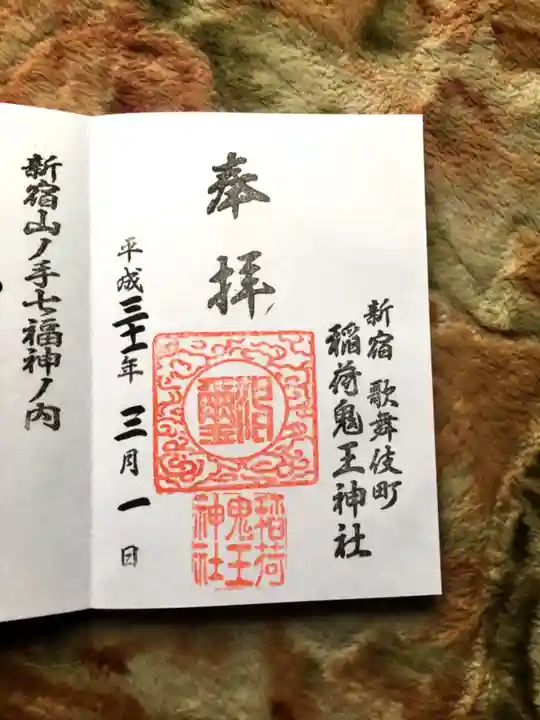 新宿歌舞伎町
稲荷鬼王神社
奉拝
平成三十一年三月一日
稲荷
鬼王
神社
新宿山ノ手七福神ノ内